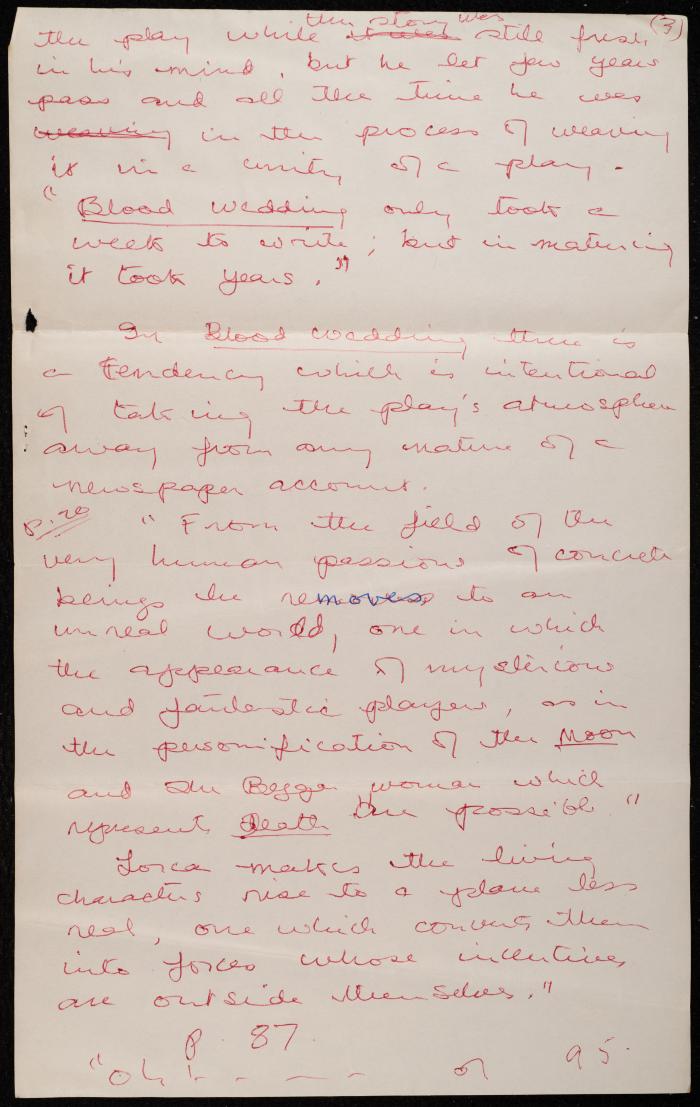 (3)
the story was
the play while it was still fresh
in his mind, but he let few years
pass and all the time he was
weaving in the process of weaving
it in a unity of a play.
"Blood wedding only took a
week to write; but in maturing
it took years."
In Blood wedding there is
a tendency which is intentional
of taking the play's atmosphere
away from any nature of a
newspaper account.
p. 20 "From the field of the
very human passions of concrete
beings he removes to an
unreal world, one in which
the appearance of mysterious
and fantastic players, as in
the personification of the Moon
and the Beggar woman which
represents Death are possible"
Lorca makes the living
characters rise to a plane less
real, one which converts them
into forces whose incentives
are outside themselves."
p. 87.
"Oh! - - - - or 95.